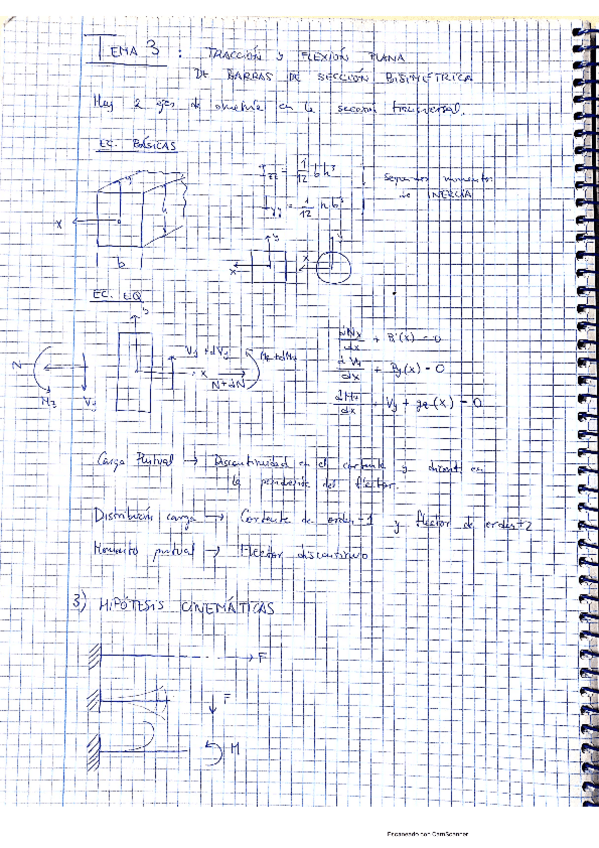 TEMA 3 : TRACCIÓN y FLEXIÓN PLANA
DE BARRAS DE SECCIÓN BISIMÉTRICA
Hay 2 ejes de simetría en la sección transversal.
EC. BÁSICAS
I = 1/12 b h³
Segundos momentos
de INERCIA
I = 1/12 h b³
x
h
b
y
x
y
x
EC. EQ
y
N
M
V
V + dV
x
N + dN
M + dM
dNx/dx + B(x) = 0
dVy/dx + By(x) = 0
dMz/dx + Vy + (x) = 0
Carga Puntual → Discontinuidad en el cortante y discont en
la pendiente del flector.
Distribución carga → Cortante de orden+1 y flector de orden+2
Momento puntual → Flector discontinuo
3) HIPÓTESIS CINEMÁTICAS
F
F
M
Escaneado con CamScanner